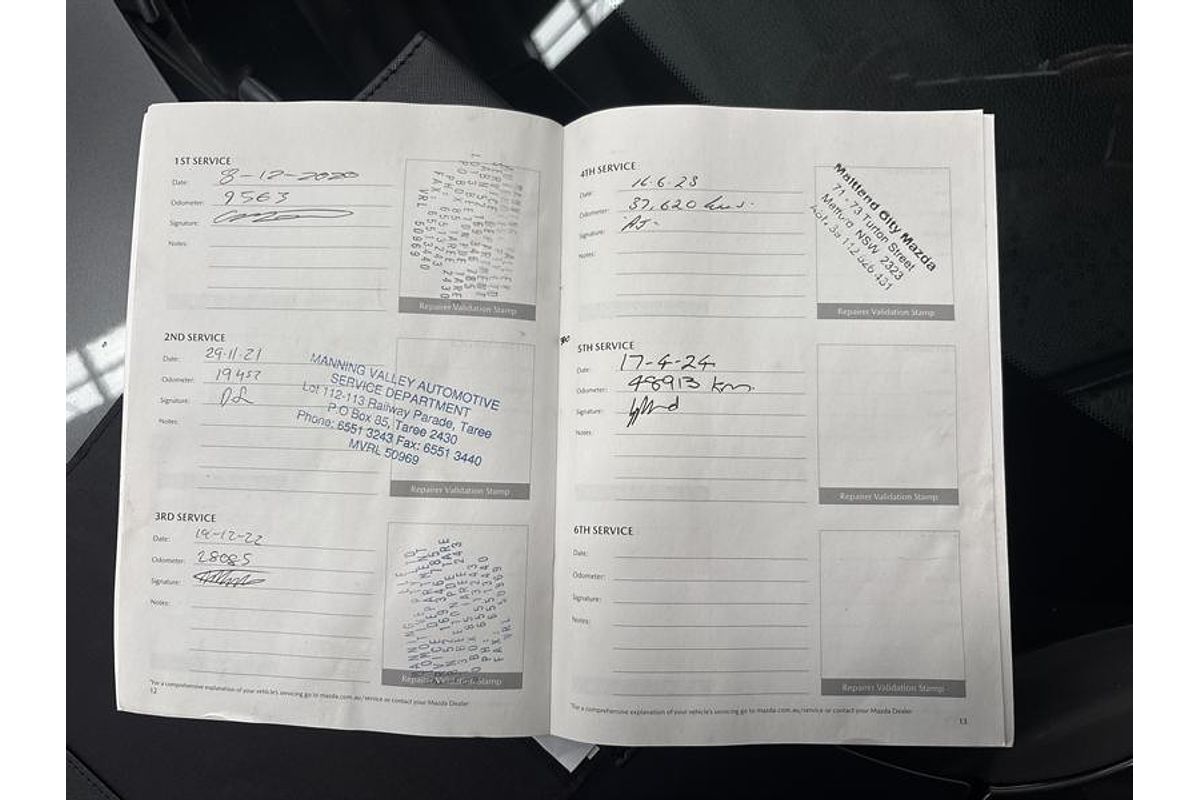 1ST SERVICE
Date: 8-12-2020
Odometer: 9563
Signature:
Notes:
PO BOX 85 TAREE 2430
PH: 65513243
FAX: 65513440
VRL 50969
Repairer Validation Stamp
2ND SERVICE
Date: 29.11.21
Odometer: 19457
Signature:
Notes:
MANNING VALLEY AUTOMOTIVE
SERVICE DEPARTMENT
Lot 112-113 Railway Parade, Taree
P O Box 85, Taree 2430
Phone: 6551 3243 Fax: 6551 3440
MVRL 50969
Repairer Validation Stamp
3RD SERVICE
Date: -12-22
Odometer: 28085
Signature:
Notes:
Repairer Validation Stamp
*For a comprehensive explanation of your vehicle's servicing go to mazda.com.au/service or contact your Mazda Dealer
12
4TH SERVICE
Date: 16.6.23
Odometer: 37,620 kms.
Signature:
Notes:
Maitland City Mazda
71 - 73 Turton Street
NSW 2323
Repairer Validation Stamp
5TH SERVICE
Date: 17-4-24
Odometer: 48913 km
Signature:
Notes:
Repairer Validation Stamp
6TH SERVICE
Date:
Odometer:
Signature:
Notes:
Repairer Validation Stamp
*For a comprehensive explanation of your vehicle's servicing go to mazda.com.au/service or contact your Mazda Dealer
13